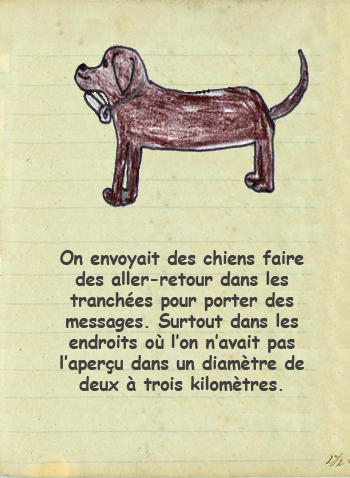 On envoyait des chiens faire
des aller-retour dans les
tranchées pour porter des
messages. Surtout dans les
endroits où l'on n'avait pas
l'aperçu dans un diamètre de
deux à trois kilomètres.